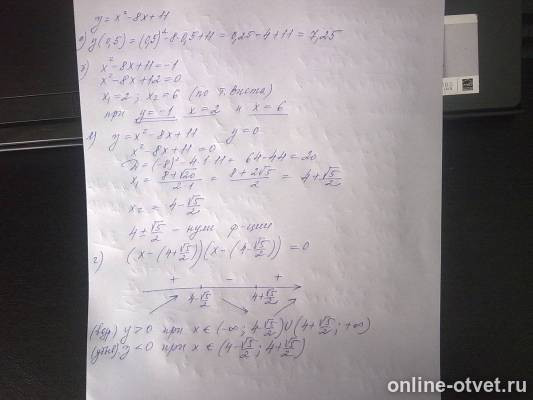 y = x² - 8x + 11
y(0,5) = (0,5)² - 8·0,5 + 11 = 0,25 - 4 + 11 = 7,25
x² - 8x + 11 = -1
x² - 8x + 12 = 0
x₁ = 2; x₂ = 6 (по т. Виета)
при y = -1 x = 2 и x = 6
в) y = x² - 8x + 11 y = 0
x² - 8x + 11 = 0
D = (-8)² - 4·1·11 = 64 - 44 = 20
x₁ = (8 + √20)/(2·1) = (8 + 2√5)/2 = 4 + √5/2
x₂ = 4 - √5/2
4 ± √5/2 - нули ф-ции
г) (x - (4 + √5/2))(x - (4 - √5/2)) = 0
+ - +
4 - √5/2 4 + √5/2
y > 0 при x ∈ (-∞; 4 - √5/2) ∪ (4 + √5/2; +∞)
y < 0 при x ∈ (4 - √5/2; 4 + √5/2)
online-otvet.ru